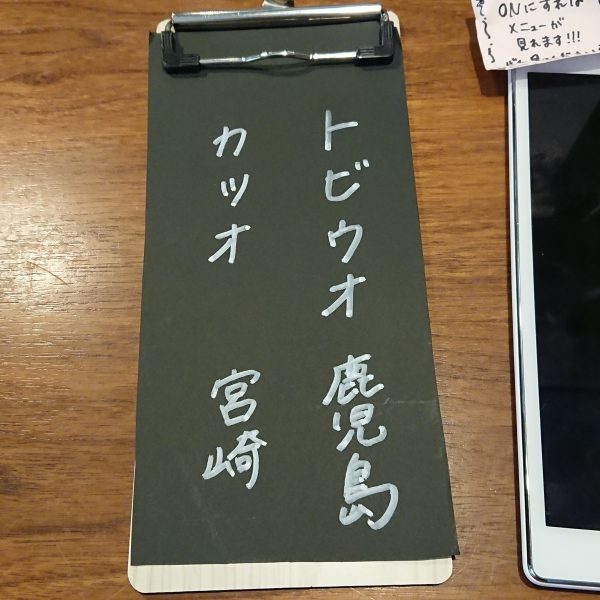 トビウオ 鹿児島
カツオ 宮崎
ONにすれば
メニューが
見れます!!!